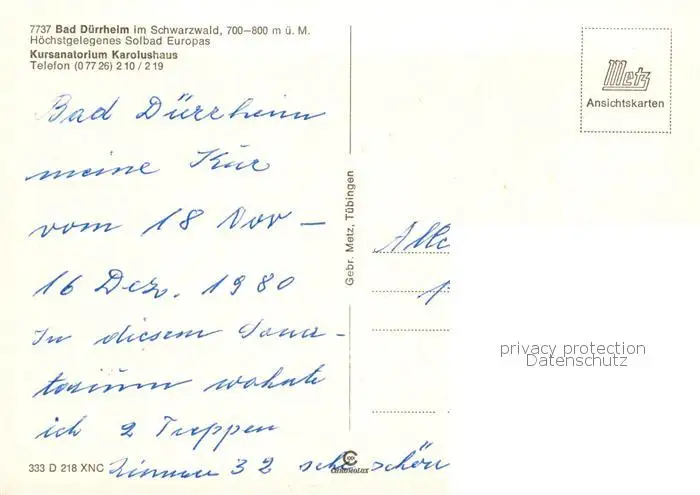 7737 Bad Dürrheim im Schwarzwald, 700–800 m ü. M.
Höchstgelegenes Solbad Europas
Kursanatorium Karolushaus
Telefon (0 77 26) 2 10 / 2 19
Bad Dürrheim
meine Kur
vom 18 Nov –
16 Dez. 1980
In diesem Sana-
torium wohnte
ich 2 Treppen
Zimmer 32 schön
333 D 218 XNC
CHROMOLUX
Gebr. Metz, Tübingen
Metz
Ansichtskarten
Alle
privacy protection
Datenschutz